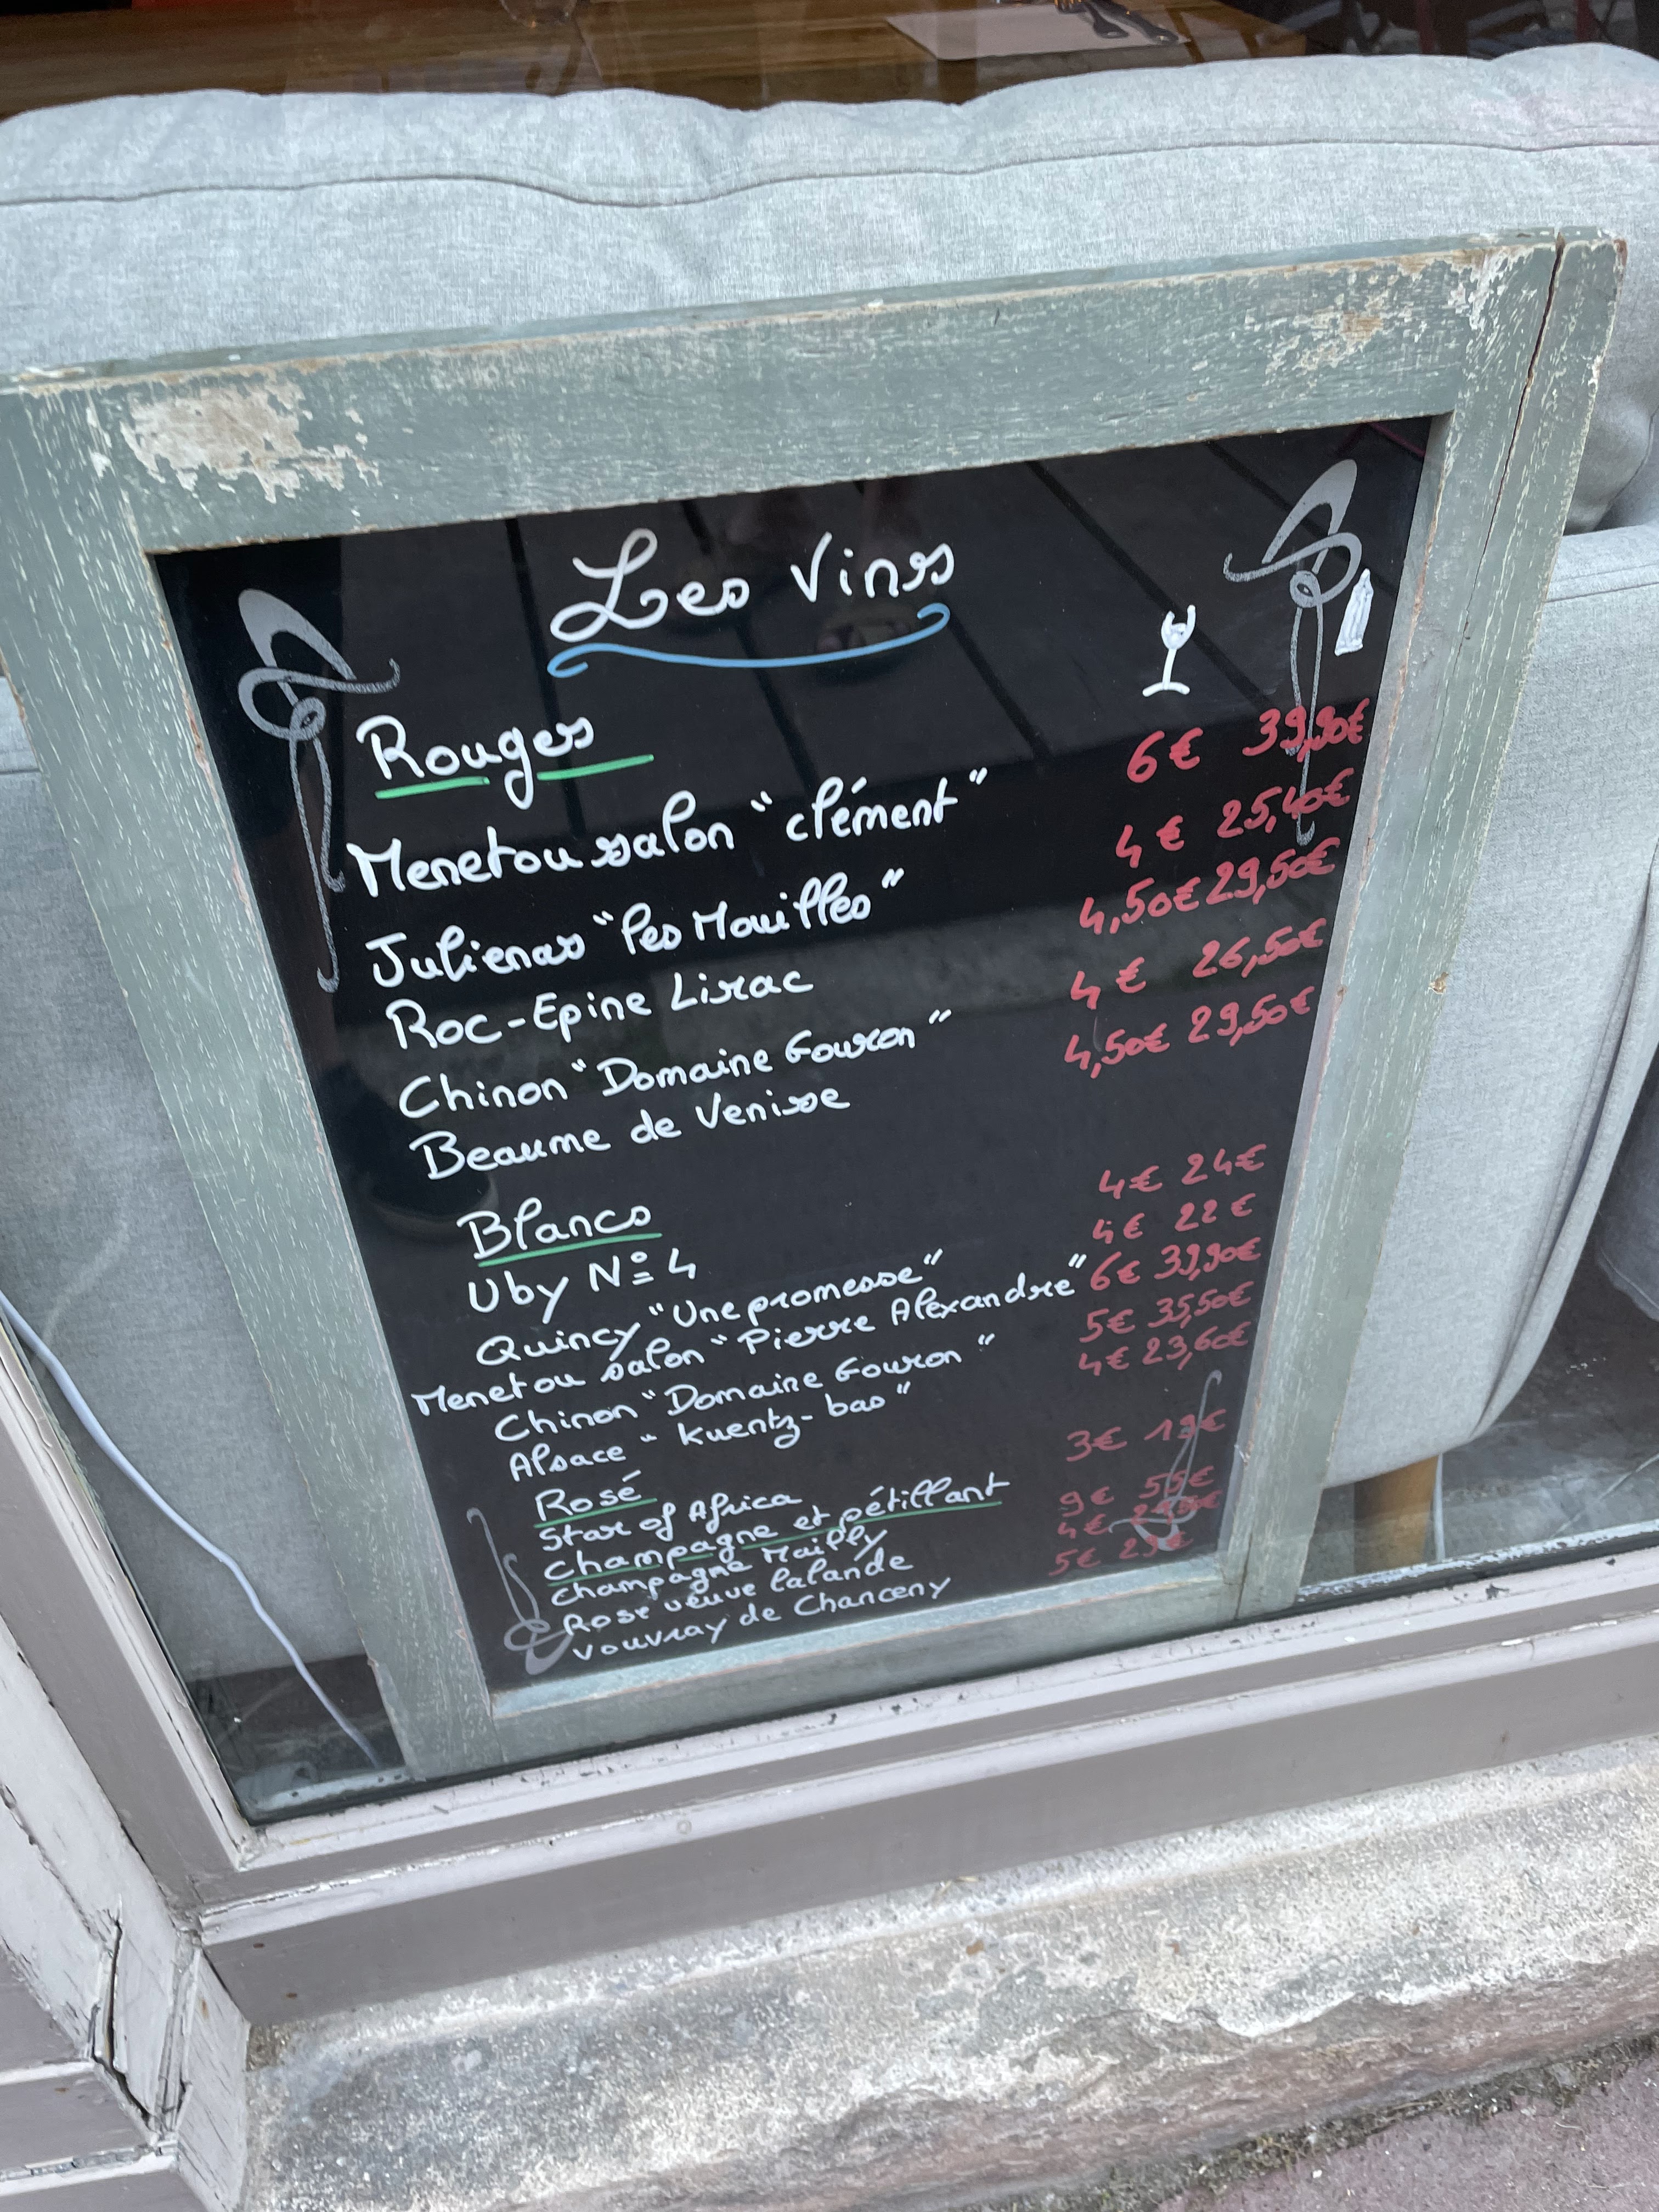 Les Vins
Rouges
Menetou salon "clément" 6€ 39,90€
Julienas "les Mouilles" 4€ 25,40€
Roc-Epine Lirac 4,50€ 29,50€
Chinon "Domaine Gouron" 4€ 26,50€
Beaume de Venisse 4,50€ 29,50€
Blancs
Uby N° 4 4€ 24€
Quincy "Une promesse" 4€ 22€
Menetou salon "Pierre Alexandre" 6€ 39,90€
Chinon "Domaine Gouron" 5€ 35,50€
Alsace "Kuentz-bas" 4€ 23,60€
Rosé
Star of Africa 3€ 19€
Champagne et pétillant
Champagne Mailly 9€ 55€
Rosé veuve lalande 4€
Vouvray de Chanceny 5€ 29€